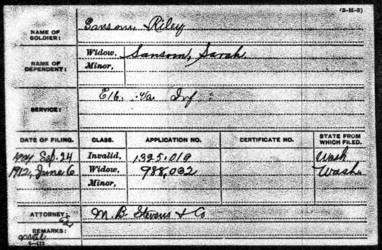 (3-55-3)
NAME OF SOLDIER: Sansom, Riley
NAME OF DEPENDENT: Widow, Sansom, Sarah
Minor,
SERVICE: E 16 Va Inf
DATE OF FILING. CLASS. APPLICATION NO. CERTIFICATE NO. STATE FROM WHICH FILED.
Sep. 24 Invalid, 1395.019 Wash
1912, June 6 Widow, 988,032 Wash
Minor,
ATTORNEY: M. B. Stevens & Co
REMARKS: